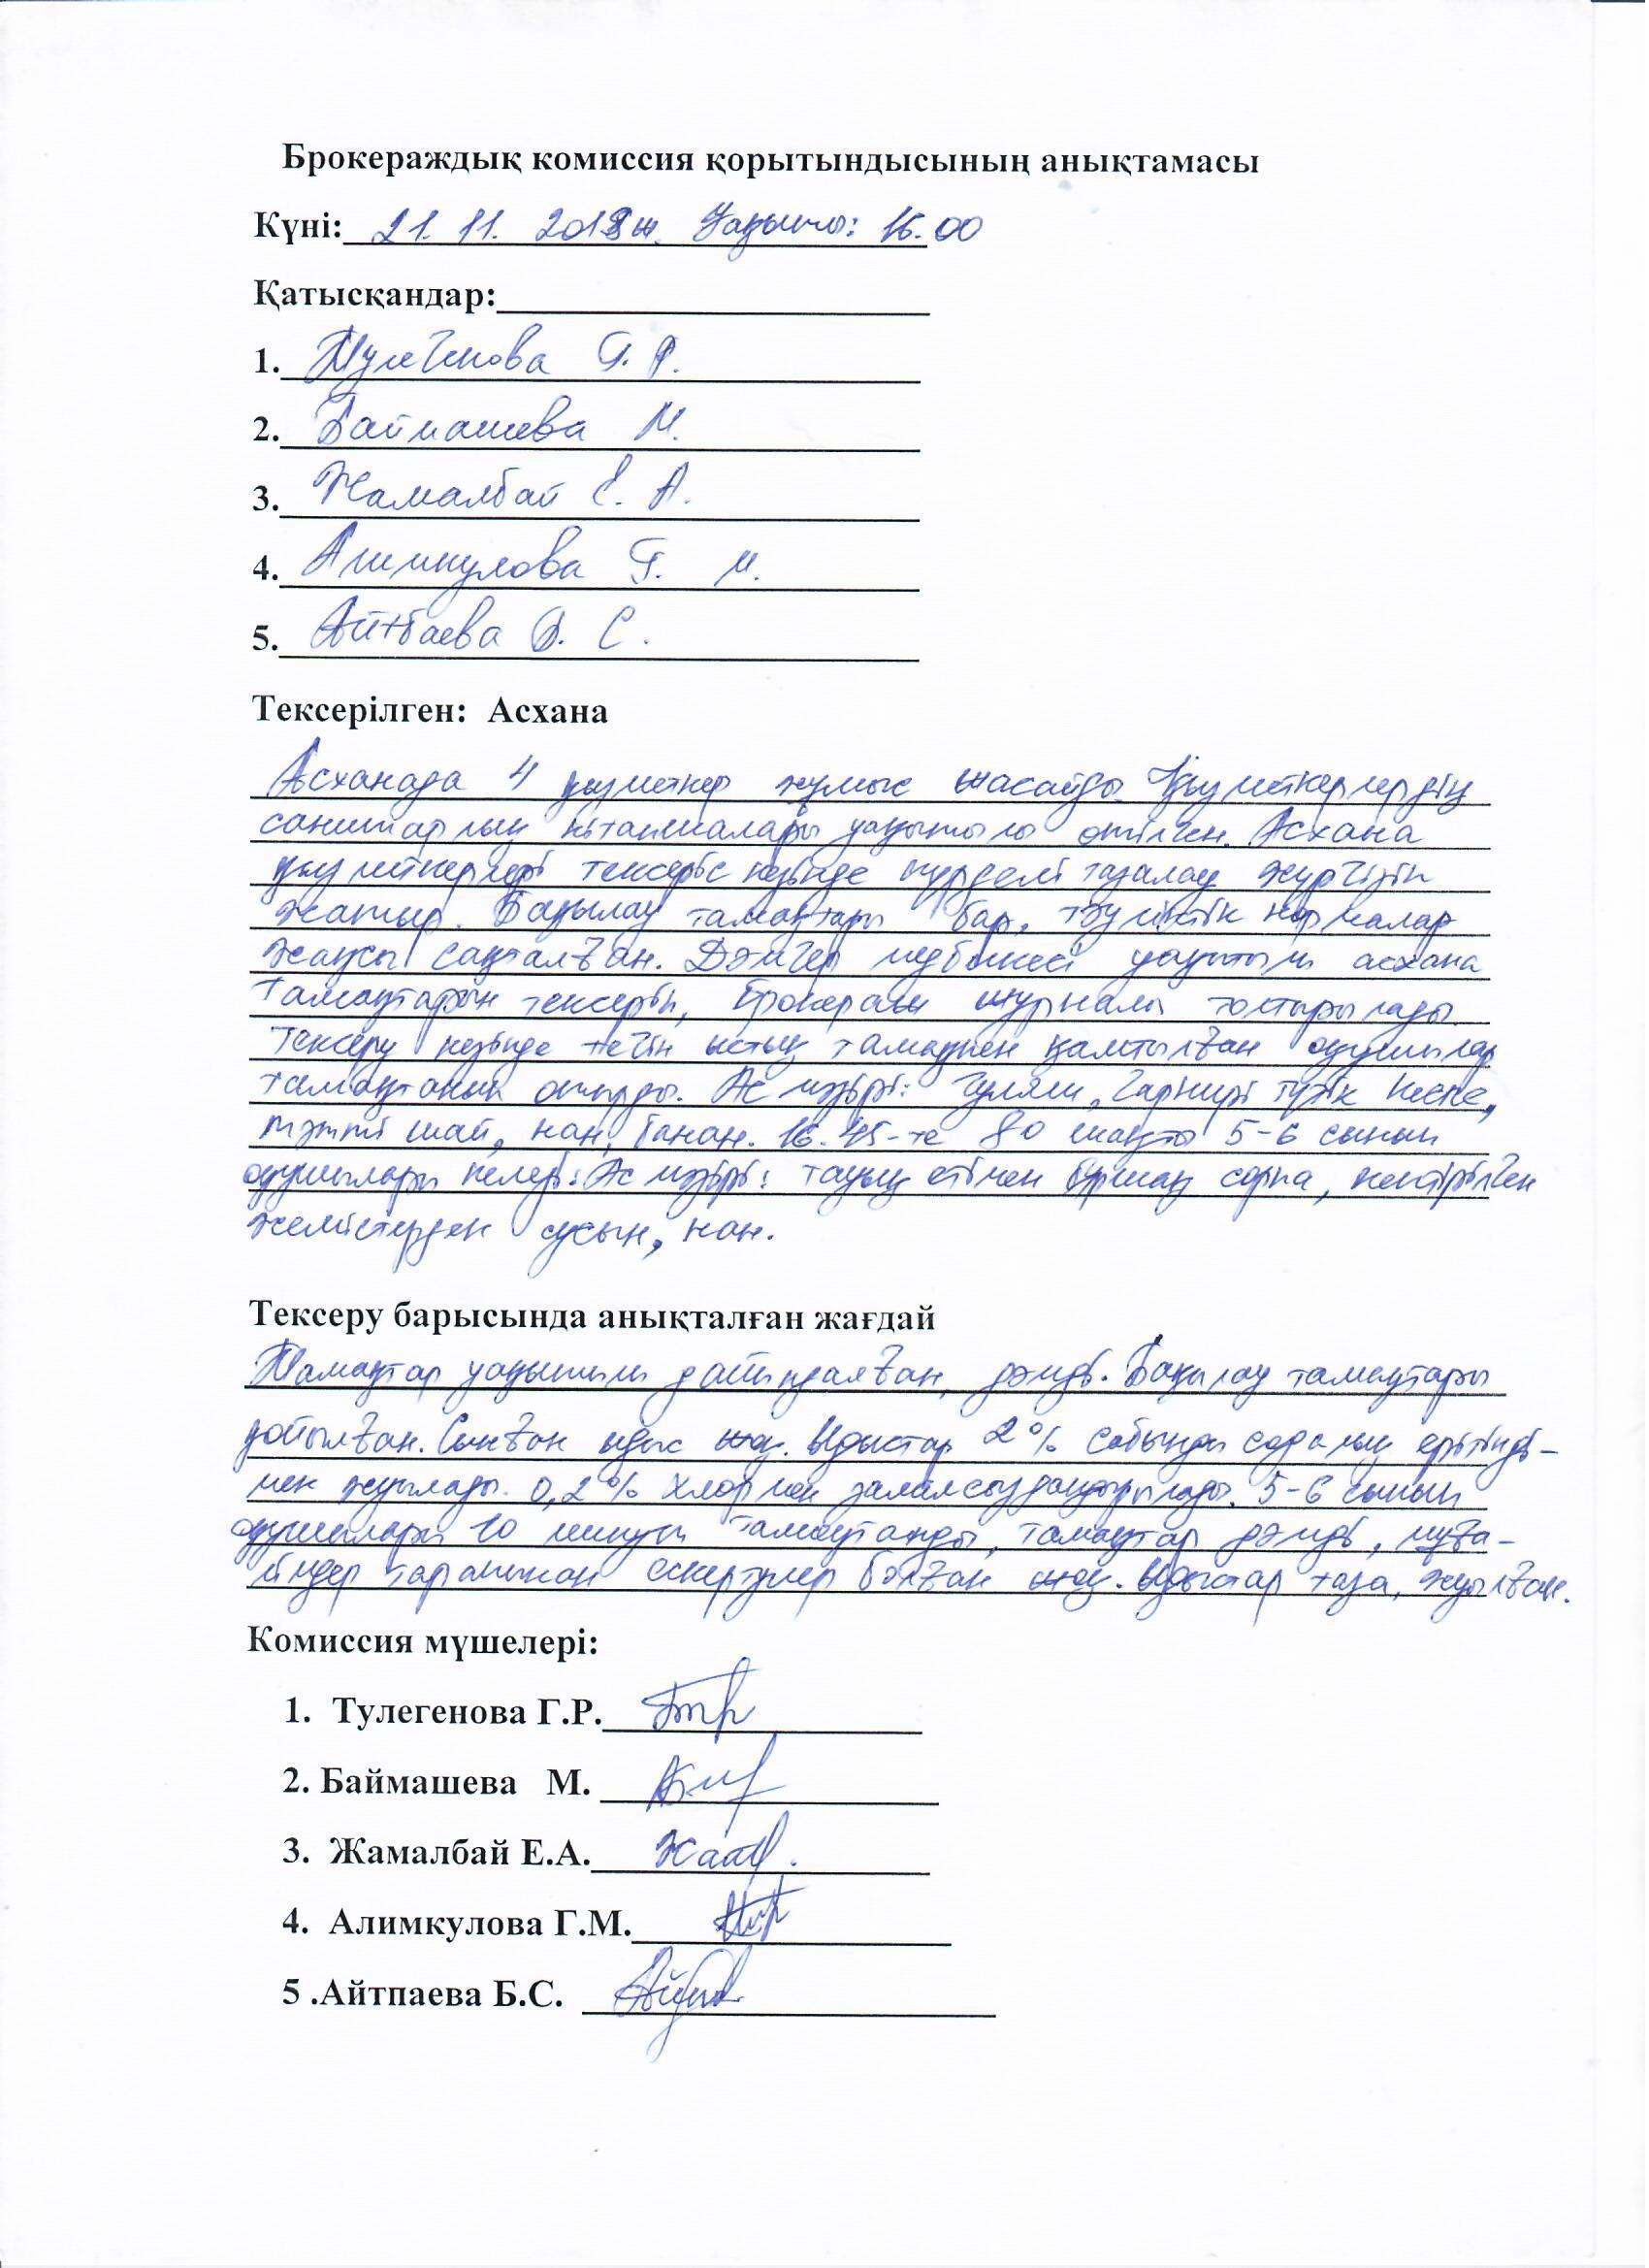 Брокераждық комиссия қорытындысының анықтамасы
Күні: 21. 11. 2018ж. Уақыты: 16.00
Қатысқандар:
1. Тулегенова Г. Р.
2. Баймашева М.
3. Жамалбай Е. А.
4. Алимкулова Г. М.
5. Айтбаева Б. С.
Тексерілген: Асхана
Асханада 4 қызметкер жұмыс жасайды. Қызметкерлердің
санитарлық кітапшалары уақытылы өтілген. Асхана
қызметкерлері тексеріс кезінде күрделі тазалау жүргізіп
жатыр. Бақылау тамақтары бар, тәуліктік нормалар
жақсы сақталған. Дәмгер медбикесі уақытылы асхана
тамақтарын тексеріп, брокераж журналы толтырылады.
Тексеру кезінде тегін ыстық тамақпен қамтылған оқушылар
тамақтанып отырды. Ас мәзірі: Гуляш, гарнирі түтік кеспе,
тәтті шай, нан, банан. 16.45-те 80 шақты 5-6 сынып
оқушылары келеді: Ас мәзірі: тауық етімен бұршақ сорпа, кептірілген
жемістерден сусын, нан.
Тексеру барысында анықталған жағдай
Тамақтар уақытылы дайындалған, дәмді. Бақылау тамақтары
қойылған. Сынған ыдыс жоқ. Ыдыстар 2% сабынды содалық ерітінді-
мен жуылады. 0,2% хлормен залалсыздандырылады. 5-6 сынып
оқушылары 10 минут тамақтанды, тамақтар дәмді, мұға-
лімдер тарапынан ескертулер болған жоқ. Ыдыстар таза, жуылған.
Комиссия мүшелері:
1. Тулегенова Г.Р.
2. Баймашева М.
3. Жамалбай Е.А.
4. Алимкулова Г.М.
5 .Айтпаева Б.С.